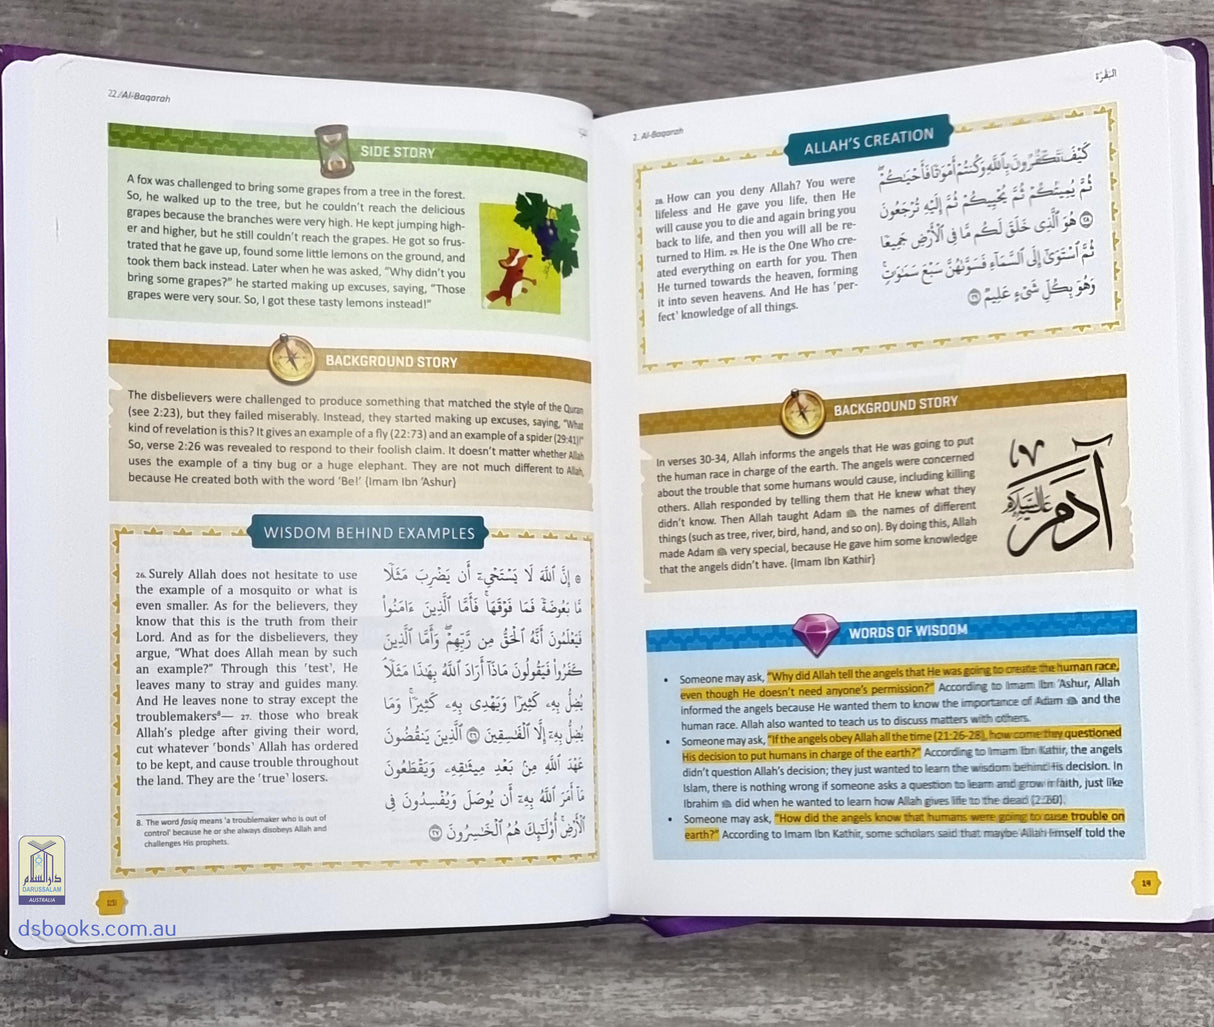 22/Al-Baqarah
SIDE STORY
A fox was challenged to bring some grapes from a tree in the forest.
So, he walked up to the tree, but he couldn't reach the delicious
grapes because the branches were very high. He kept jumping high-
er and higher, but he still couldn't reach the grapes. He got so frus-
trated that he gave up, found some little lemons on the ground, and
took them back instead. Later when he was asked, "Why didn't you
bring some grapes?" he started making up excuses, saying, "Those
grapes were very sour. So, I got these tasty lemons instead!"
BACKGROUND STORY
The disbelievers were challenged to produce something that matched the style of the Quran
(see 2:23), but they failed miserably. Instead, they started making up excuses, saying, "What
kind of revelation is this? It gives an example of a fly (22:73) and an example of a spider (29:41)!"
So, verse 2:26 was revealed to respond to their foolish claim. It doesn't matter whether Allah
uses the example of a tiny bug or a huge elephant. They are not much different to Allah,
because He created both with the word 'Be!' {Imam Ibn 'Ashur}
WISDOM BEHIND EXAMPLES
26. Surely Allah does not hesitate to use
the example of a mosquito or what is
even smaller. As for the believers, they
know that this is the truth from their
Lord. And as for the disbelievers, they
argue, "What does Allah mean by such
an example?" Through this 'test', He
leaves many to stray and guides many.
And He leaves none to stray except the
troublemakers⁸— 27. those who break
Allah's pledge after giving their word,
cut whatever 'bonds' Allah has ordered
to be kept, and cause trouble throughout
the land. They are the 'true' losers.
۞ إِنَّ ٱللَّهَ لَا يَسْتَحْيِۦٓ أَن يَضْرِبَ مَثَلًا
مَّا بَعُوضَةً فَمَا فَوْقَهَا ۚ فَأَمَّا ٱلَّذِينَ ءَامَنُوا۟
فَيَعْلَمُونَ أَنَّهُ ٱلْحَقُّ مِن رَّبِّهِمْ ۖ وَأَمَّا ٱلَّذِينَ
كَفَرُوا۟ فَيَقُولُونَ مَاذَآ أَرَادَ ٱللَّهُ بِهَـٰذَا مَثَلًا ۘ
يُضِلُّ بِهِۦ كَثِيرًا وَيَهْدِى بِهِۦ كَثِيرًا ۚ وَمَا
يُضِلُّ بِهِۦٓ إِلَّا ٱلْفَـٰسِقِينَ ٢٦ ٱلَّذِينَ يَنقُضُونَ
عَهْدَ ٱللَّهِ مِنۢ بَعْدِ مِيثَـٰقِهِۦ وَيَقْطَعُونَ
مَآ أَمَرَ ٱللَّهُ بِهِۦٓ أَن يُوصَلَ وَيُفْسِدُونَ فِى
ٱلْأَرْضِ ۚ أُو۟لَـٰٓئِكَ هُمُ ٱلْخَـٰسِرُونَ ٢٧
8. The word fasiq means 'a troublemaker who is out of
control' because he or she always disobeys Allah and
challenges His prophets.
دارالسلام
DARUSSALAM
AUSTRALIA
dsbooks.com.au
2. Al-Baqarah
البَقَرَة
ALLAH'S CREATION
28. How can you deny Allah? You were
lifeless and He gave you life, then He
will cause you to die and again bring you
back to life, and then you will all be re-
turned to Him. 29. He is the One Who cre-
ated everything on earth for you. Then
He turned towards the heaven, forming
it into seven heavens. And He has 'per-
fect' knowledge of all things.
كَيْفَ تَكْفُرُونَ بِٱللَّهِ وَكُنتُمْ أَمْوَٰتًا فَأَحْيَـٰكُمْ ۖ
ثُمَّ يُمِيتُكُمْ ثُمَّ يُحْيِيكُمْ ثُمَّ إِلَيْهِ تُرْجَعُونَ
٢٨ هُوَ ٱلَّذِى خَلَقَ لَكُم مَّا فِى ٱلْأَرْضِ جَمِيعًا
ثُمَّ ٱسْتَوَىٰٓ إِلَى ٱلسَّمَآءِ فَسَوَّىٰهُنَّ سَبْعَ سَمَـٰوَٰتٍ ۚ
وَهُوَ بِكُلِّ شَىْءٍ عَلِيمٌ ٢٩
BACKGROUND STORY
In verses 30-34, Allah informs the angels that He was going to put
the human race in charge of the earth. The angels were concerned
about the trouble that some humans would cause, including killing
others. Allah responded by telling them that He knew what they
didn't know. Then Allah taught Adam the names of different
things (such as tree, river, bird, hand, and so on). By doing this, Allah
made Adam very special, because He gave him some knowledge
that the angels didn't have. {Imam Ibn Kathir}
آدم
عليه السلام
WORDS OF WISDOM
• Someone may ask, "Why did Allah tell the angels that He was going to create the human race,
even though He doesn't need anyone's permission?" According to Imam Ibn 'Ashur, Allah
informed the angels because He wanted them to know the importance of Adam and the
human race. Allah also wanted to teach us to discuss matters with others.
• Someone may ask, "If the angels obey Allah all the time (21:26-28), how come they questioned
His decision to put humans in charge of the earth?" According to Imam Ibn Kathir, the angels
didn't question Allah's decision; they just wanted to learn the wisdom behind His decision. In
Islam, there is nothing wrong if someone asks a question to learn and grow in faith, just like
Ibrahim did when he wanted to learn how Allah gives life to the dead (2:260).
• Someone may ask, "How did the angels know that humans were going to cause trouble on
earth?" According to Imam Ibn Kathir, some scholars said that maybe Allah Himself told the